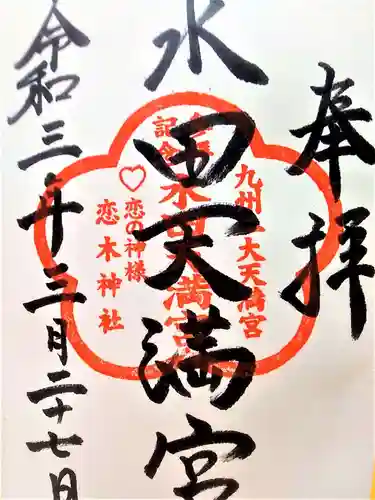 奉拝
水田天満宮
令和三年三月二十七日
九州二大天満宮
水田天満宮
記念
♡恋の神様
恋木神社